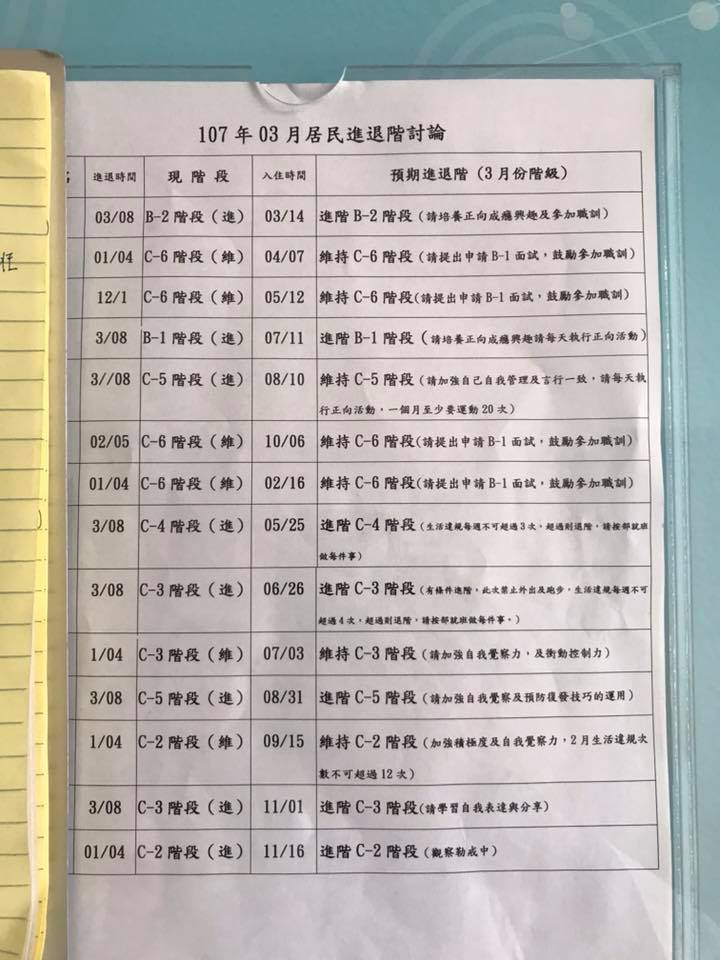 107 年 03 月居民進退階討論
進退時間 現 階 段 入住時間 預期進退階 (3 月份階級)
03/08 B-2 階段（進） 03/14 進階 B-2 階段 (請培養正向成癮興趣及參加職訓)
01/04 C-6 階段（維） 04/07 維持 C-6 階段 (請提出申請 B-1 面試，鼓勵參加職訓)
12/1 C-6 階段（維） 05/12 維持 C-6 階段(請提出申請 B-1 面試，鼓勵參加職訓)
3/08 B-1 階段（進） 07/11 進階 B-1 階段 (請培養正向成癮興趣請每天執行正向活動)
3//08 C-5 階段（進） 08/10 維持 C-5 階段 (請加強自己自我管理及言行一致，請每天執
行正向活動，一個月至少要運動 20 次)
02/05 C-6 階段（維） 10/06 維持 C-6 階段(請提出申請 B-1 面試，鼓勵參加職訓)
01/04 C-6 階段（維） 02/16 維持 C-6 階段(請提出申請 B-1 面試，鼓勵參加職訓)
3/08 C-4 階段（進） 05/25 進階 C-4 階段 (生活違規每週不可超過 3 次，超過則退階，請按部就班
做每件事)
3/08 C-3 階段（進） 06/26 進階 C-3 階段 (有條件進階，此次禁止外出及跑步，生活違規每週不可
超過 4 次，超過則退階，請按部就班做每件事。)
1/04 C-3 階段（維） 07/03 維持 C-3 階段 (請加強自我覺察力，及衝動控制力)
3/08 C-5 階段（進） 08/31 進階 C-5 階段 (請加強自我覺察及預防復發技巧的運用)
1/04 C-2 階段（維） 09/15 維持 C-2 階段 (加強積極度及自我覺察力，2 月生活違規次
數不可超過 12 次)
3/08 C-3 階段（進） 11/01 進階 C-3 階段(請學習自我表達與分享)
01/04 C-2 階段（進） 11/16 進階 C-2 階段 (觀察勒戒中)